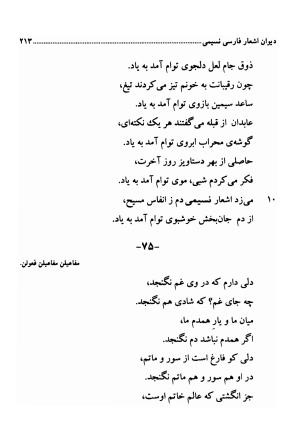 دیوان اشعار فارسی نسیمی ........................................ ۲۱۳
ذوق جام لعل دلجوی توام آمد به یاد.
چون رقیبانت به خونم تیز می‌کردند تیغ،
ساعد سیمین بازوی توام آمد به یاد.
عابدان از قبله می‌گفتند هر یك نکته‌ای،
گوشه‌ی محراب ابروی توام آمد به یاد.
حاصلی از بهر دستاویز روز آخرت،
فکر می‌کردم شبی، موی توام آمد به یاد.
۱۰ می‌زد اشعار نسیمی دم ز انفاس مسیح،
از دم جان‌بخش خوشبوی توام آمد به یاد.
-۷۵-
مفاعیلن مفاعیلن فعولن.
دلی دارم که در وی غم نگنجد،
چه جای غم؟ که شادی هم نگنجد.
میان ما و یار همدم ما،
اگر همدم نباشد دم نگنجد.
دلی کو فارغ است از سور و ماتم،
در او هم سور و هم ماتم نگنجد.
جز انگشتی که عالم خاتم اوست،